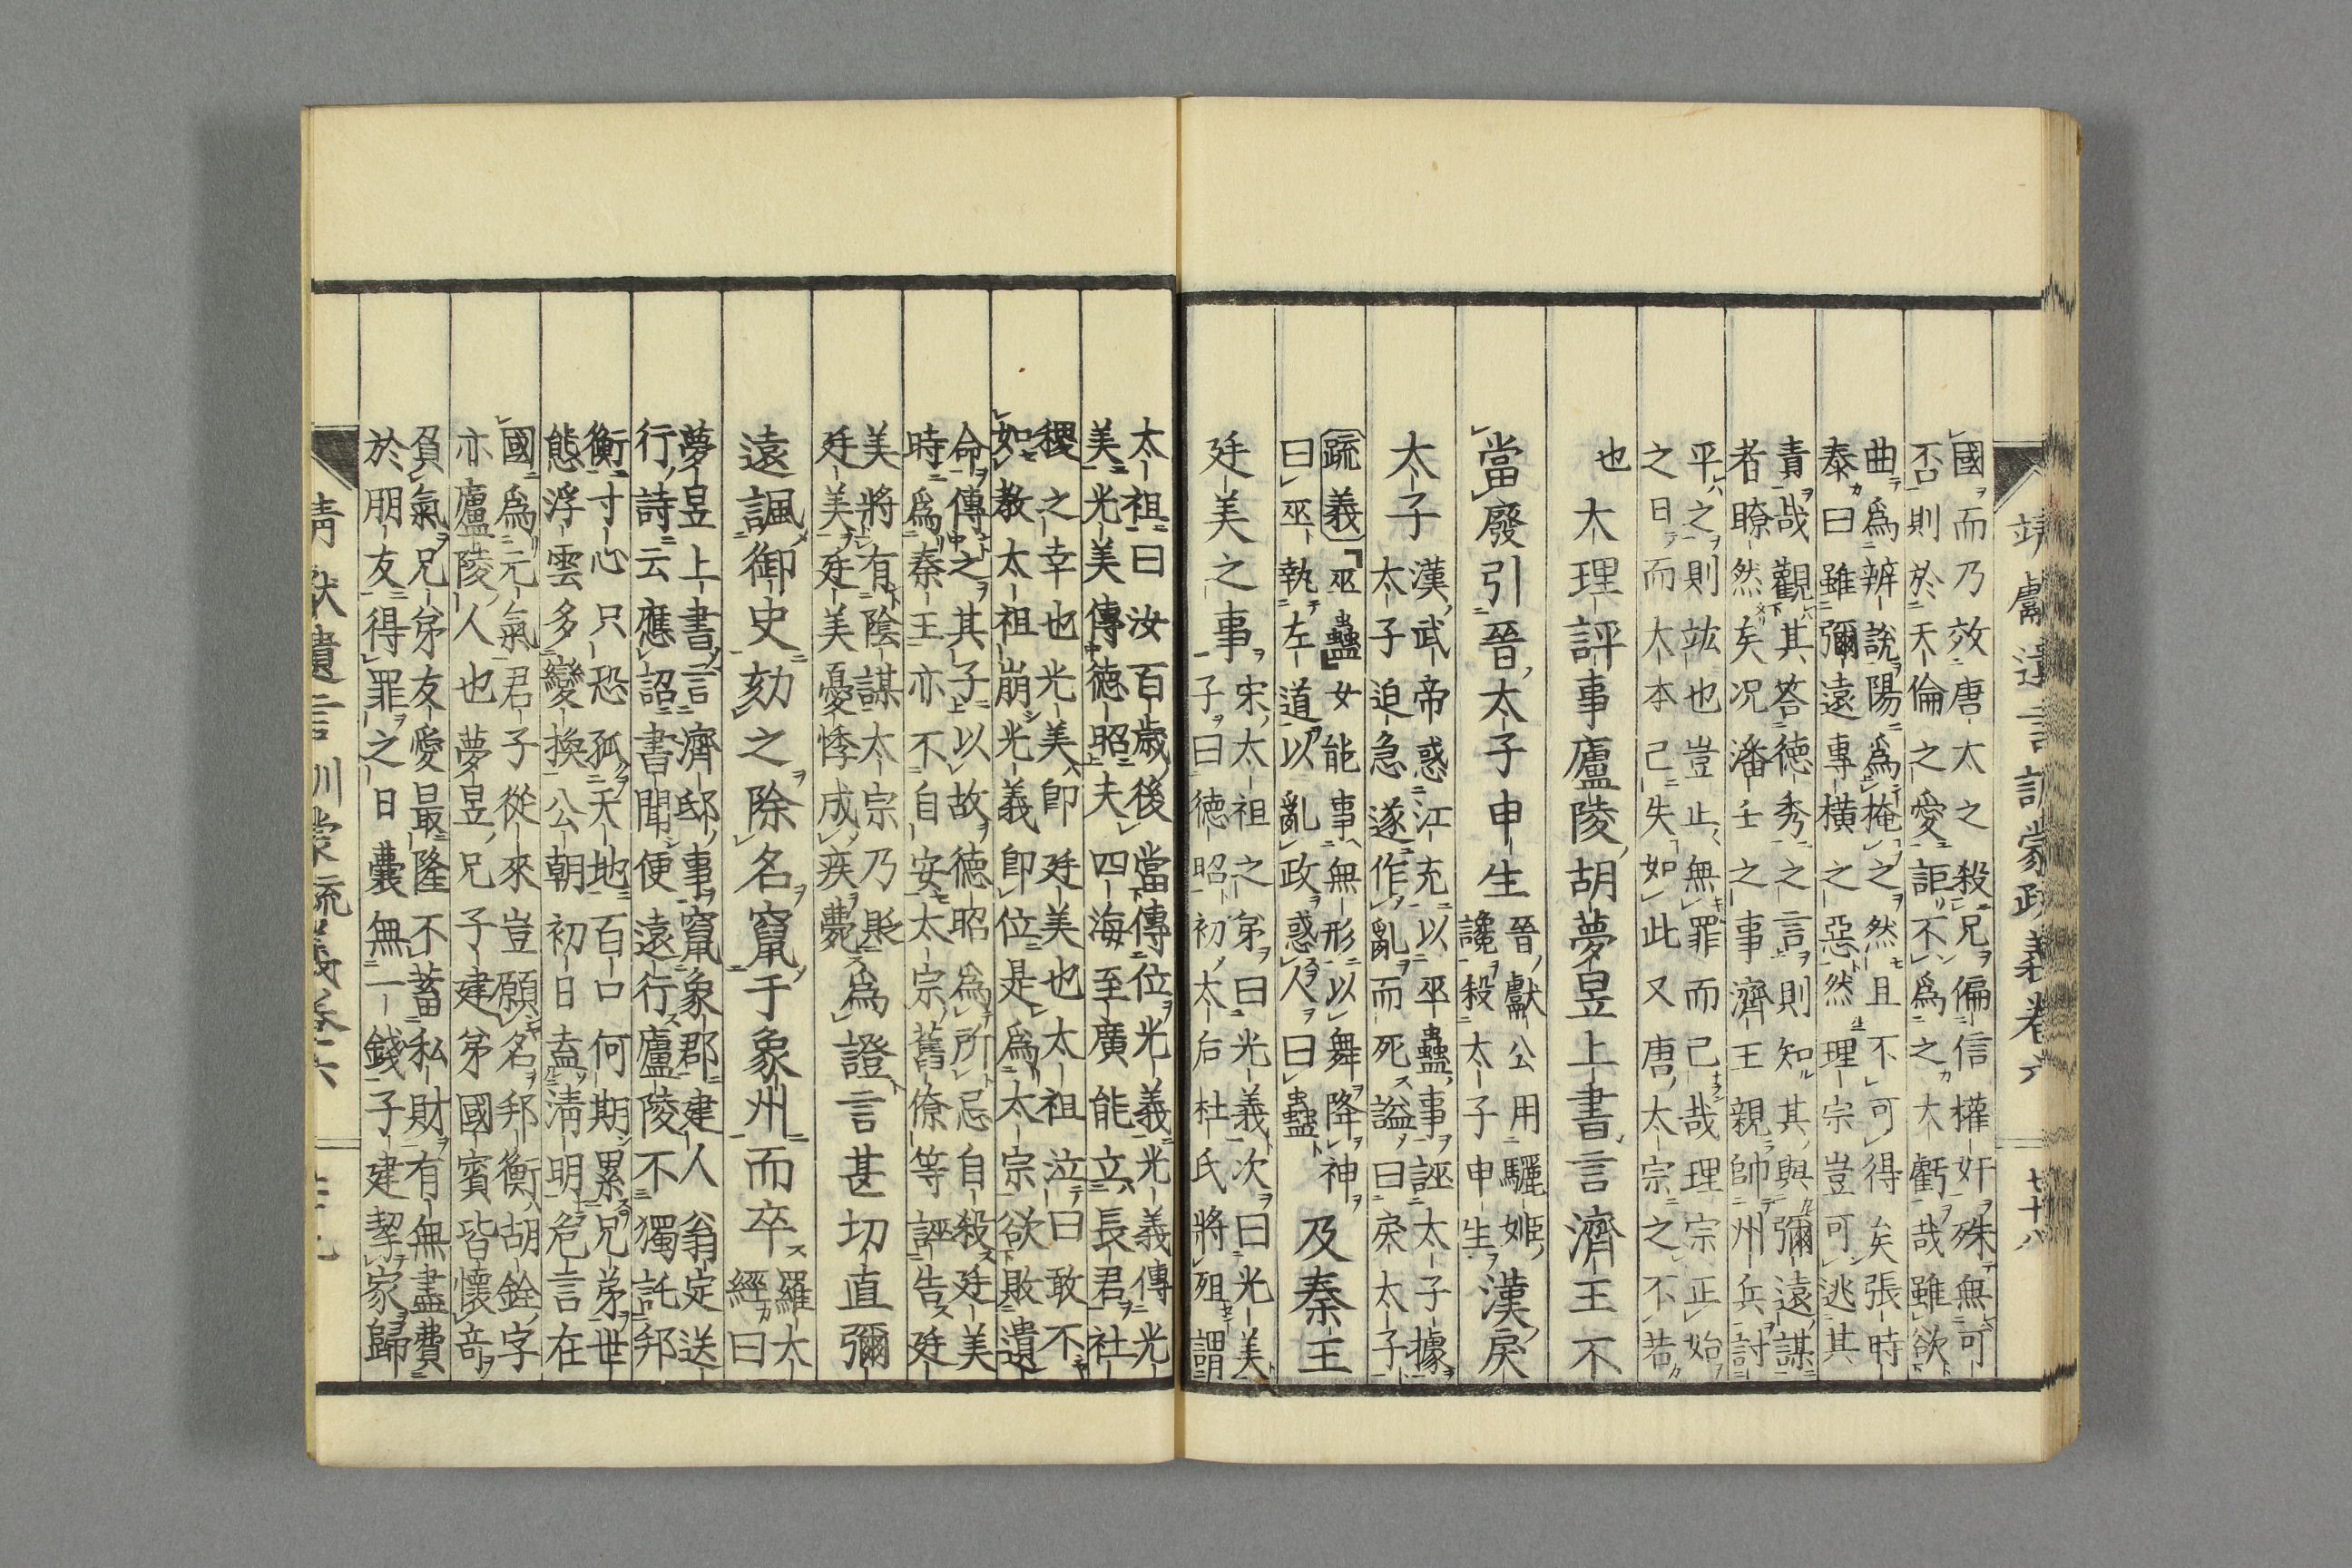 靖獻遺言訓蒙疏義卷六
七十八
國而乃效唐太之殺兄偏信權奸殊無可
否則於天倫之愛詎不爲之大虧哉雖欲
曲爲辨說陽爲掩之然且不可得矣張時
泰曰雖彌遠專橫之惡然理宗豈可逃其
責哉觀其答德秀之言則知其與彌遠謀
者瞭然矣况潘壬之事濟王親帥州兵討
平之則竑也豈止無罪而己哉理宗正始
之日而太本己失如此又唐太宗之不若
也
大理評事廬陵胡夢昱上書言濟王不
當廢引晉太子申生
晉獻公用驪姬
讒殺太子申生
漢戾
太子
漢武帝惑江充以巫蠱事誣太子據
太子迫急遂作亂而死謚曰戾太子
疏義
巫蠱女能事無形以舞降神
曰巫執左道以亂政惑人曰蠱
及秦王
廷美之事
宋太祖之弟曰光義次曰光美
子曰德昭初太后杜氏將殂謂
太祖曰汝百歲後當傳位光義光義傳光
美光美傳德昭夫四海至廣能立長君社
稷之幸也光美卽廷美也太祖泣曰敢不
如教太祖崩光義卽位是爲太宗欲敗遺
命傳之其子以故德昭爲所忌自殺廷美
時爲秦王亦不自安太宗舊僚等誣告廷
美將有陰謀太宗乃貶
廷美廷美憂悸成疾薨
爲證言甚切直彌
遠諷御史劾之除名竄于象州而卒
羅大
經曰
夢昱上書言濟邸事竄象郡建人翁定送
行詩云應詔書聞便遠行廬陵不獨託邦
衡寸心只恐孤天地百口何期累兄弟世
態浮雲多變換公朝初日盍淸明危言在
國爲元氣君子從來豈願名邦衡胡銓字
亦廬陵人也夢昱兄子建弟國賓皆懷奇
負氣兄弟友愛最隆不蓄私財有無盡費
於朋友得罪之日囊無一錢子建挈家歸
靖獻遺言訓蒙疏義卷六